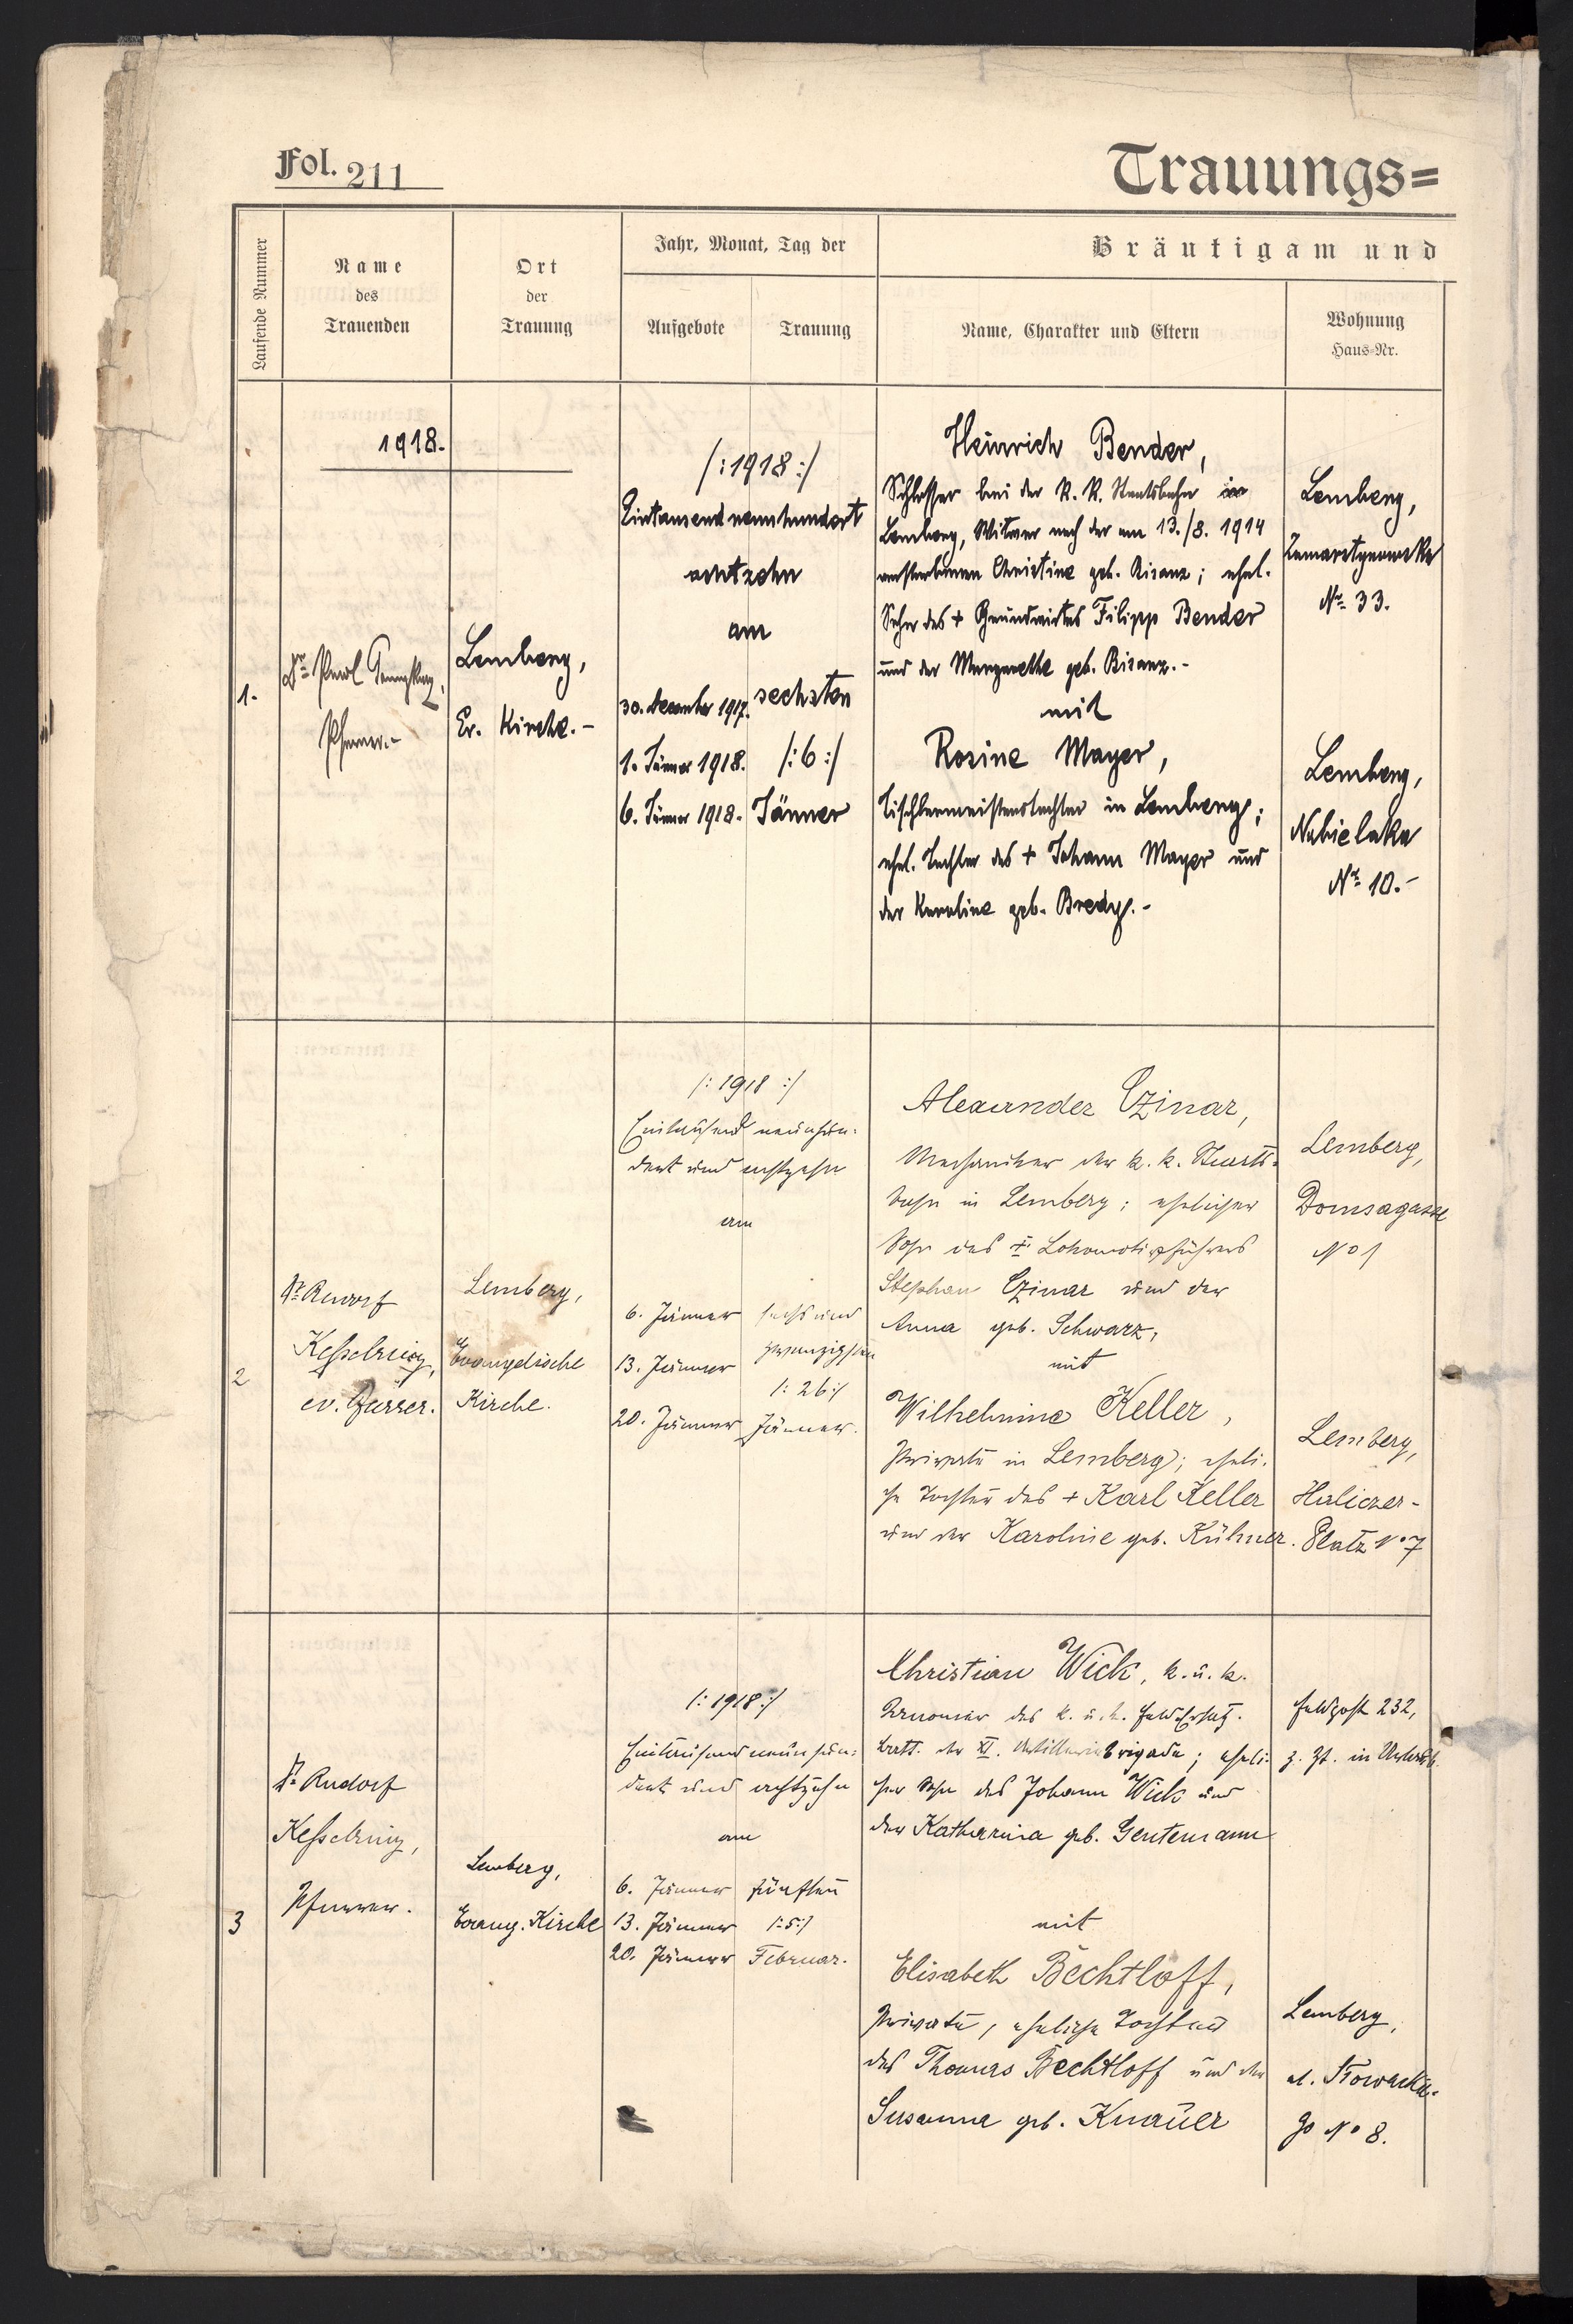 Fol. 211
Trauungs=
Laufende Nummer
Name
des
Trauenden
Ort
der
Trauung
Jahr, Monat, Tag der
Aufgebote
Trauung
Bräutigam und
Name, Charakter und Eltern
Wohnung
Haus-Nr.
1918.
1.
Dr. Paul
Pfarrer.-
Lemberg,
Ev. Kirche.-
/:1918:/
Eintausendneunhundert
achtzehn
am
30. December 1917.
1. Jänner 1918.
6. Jänner 1918.
sechsten
/:6:/
Jänner
Heinrich Bender,
Schlosser bei der K. K. Staatsbahn in
Lemberg, Witwer nach der am 13./8. 1914
verstorbenen Christine geb. Bisanz; ehel.
Sohn des + Grundwirtes Filipp Bender
und der Margarethe geb. Bisanz.-
mit
Rosine Mayer,
Tischlermeisterstochter in Lemberg;
ehel. Tochter des + Johann Mayer und
der Karoline geb. Bredy.-
Lemberg,
No. 33.
Lemberg,
Nabielaka
No. 10.-
2
Dr. Rudolf
Kesselring,
ev. Pfarrer.
Lemberg,
Evangelische
Kirche.
/:1918:/
Eintausend neunhun-
dert und achtzehn
am
6. Jänner
13. Jänner
20. Jänner
sechsund
zwanzigsten
/:26:/
Jänner.
Alexander Czinar,
Mechaniker der k. k. Staats-
bahn in Lemberg; ehelicher
Sohn des + Lokomotivführers
Stephan Czinar und der
Anna geb. Schwarz,
mit
Wilhelmine Keller,
Private in Lemberg; eheli-
che Tochter des + Karl Keller
und der Karoline geb. Kühner.
Lemberg,
Domsagasse
No 1
Lemberg,
Haliczer-
Platz No 7
3
Dr. Rudolf
Kesselring,
Pfarrer.
Lemberg,
Evang. Kirche
/:1918:/
Eintausend neunhun-
dert und achtzehn
am
6. Jänner
13. Jänner
20. Jänner
fünften
/:5:/
Februar.
Christian Wick, k. u. k.
Kanonier des k. u. k. Feld
Batt. der XI. Artilleriebrigade; eheli-
cher Sohn des Johann Wick und
der Katharina geb. Gentemann
mit
Elisabeth Bechtloff,
Private, eheliche Tochter
des Thomas Bechtloff und der
Susanna geb. Knauer
Feldpost 232,
z. Zt. in Urlaub
Lemberg,
ul.
go No 8.